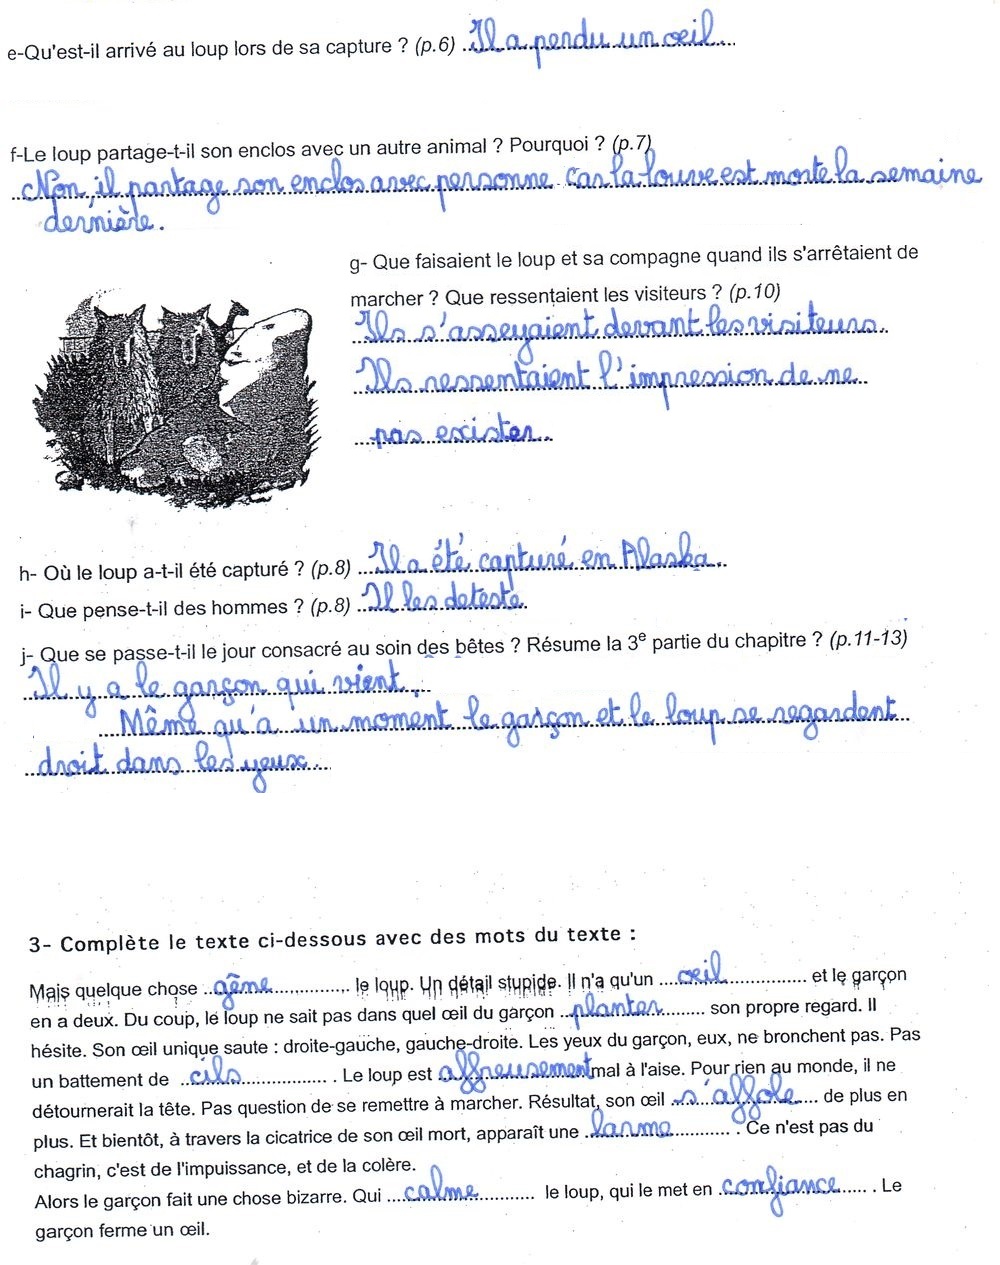 e-Qu'est-il arrivé au loup lors de sa capture ? (p.6) Il a perdu un oeil
f-Le loup partage-t-il son enclos avec un autre animal ? Pourquoi ? (p.7)
Non, il partage son enclos avec personne car la louve est morte la semaine
dernière.
g- Que faisaient le loup et sa compagne quand ils s'arrêtaient de
marcher ? Que ressentaient les visiteurs ? (p.10)
Ils s'asseyaient devant les visiteurs.
Ils ressentaient l'impression de ne
pas exister.
h- Où le loup a-t-il été capturé ? (p.8) Il a été capturé en Alaska.
i- Que pense-t-il des hommes ? (p.8) Il les deteste.
j- Que se passe-t-il le jour consacré au soin des bêtes ? Résume la 3e partie du chapitre ? (p.11-13)
Il y a le garçon qui vient.
Même qu'a un moment le garçon et le loup se regardent
droit dans les yeux.
3- Complète le texte ci-dessous avec des mots du texte :
Mais quelque chose gêne le loup. Un détail stupide. Il n'a qu'un oeil et le garçon
en a deux. Du coup, le loup ne sait pas dans quel œil du garçon planter son propre regard. Il
hésite. Son œil unique saute : droite-gauche, gauche-droite. Les yeux du garçon, eux, ne bronchent pas. Pas
un battement de cils . Le loup est affreusement mal à l'aise. Pour rien au monde, il ne
détournerait la tête. Pas question de se remettre à marcher. Résultat, son œil s'affole de plus en
plus. Et bientôt, à travers la cicatrice de son œil mort, apparaît une larme . Ce n'est pas du
chagrin, c'est de l'impuissance, et de la colère.
Alors le garçon fait une chose bizarre. Qui calme le loup, qui le met en confiance . Le
garçon ferme un œil.